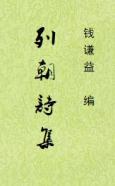 列朝詩集
钱谦益 编